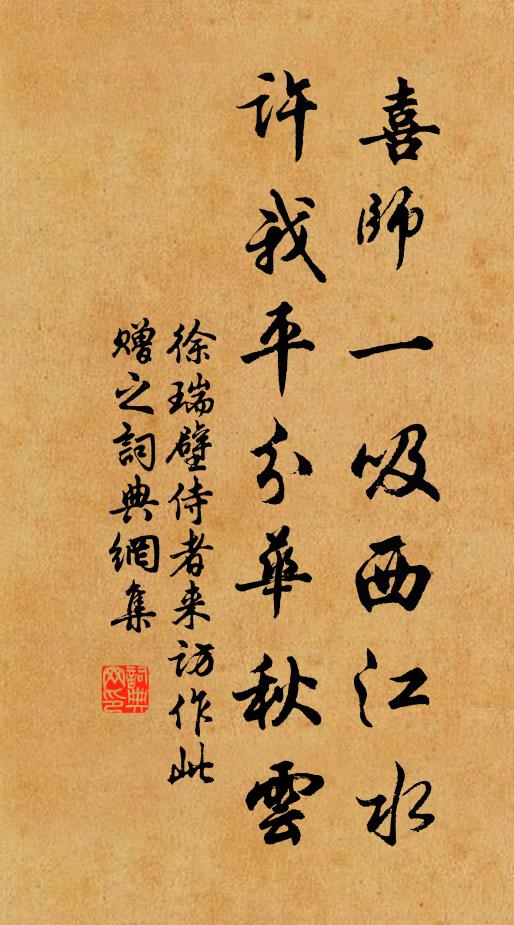 喜師一吸西江水
許我平分華秋雲
徐瑞壁侍者来訪作此
贈之詞典網集
詞典
网印